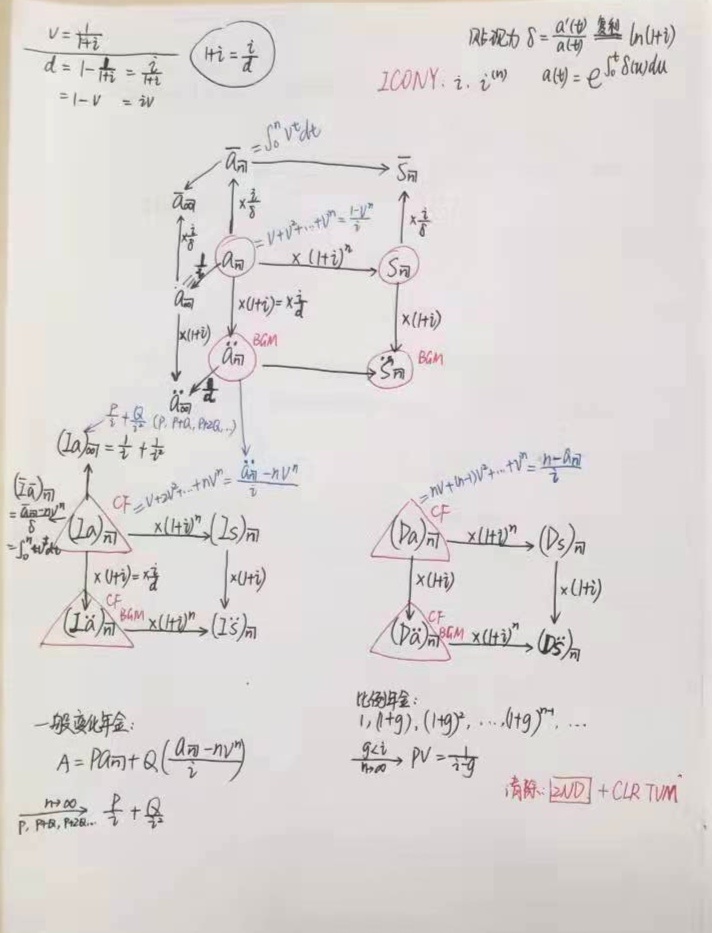 v = 1/(1+i)
d = 1 - 1/(1+i) = i/(1+i)
= 1-v = iv
1+i = i/d
贴现力 δ = a'(t)/a(t) 复利 ln(1+i)
ICONV. i. i^(n)
a(t) = e^∫₀ᵗ δ(u)du
ā_n┐ = ∫₀ⁿ vᵗdt
s̄_n┐
ā_∞┐
×i/δ
×i/δ
×i/δ
a_n┐ = v+v²+...+vⁿ = (1-vⁿ)/i
×(1+i)ⁿ
s_n┐
a_∞┐
×(1+i)
×(1+i)=×i/d
×(1+i)
ä_n┐ BGN
s̈_n┐ BGN
1/d
ä_∞┐
P/i + Q/i² (P, P+Q, P+2Q,...)
(Ia)_∞┐ = 1/i + 1/i²
(Īā)_n┐
= (ā_n┐-nvⁿ)/δ
= ∫₀ⁿ tvᵗdt
(Ia)_n┐ CF = v+2v²+...+nvⁿ = (ä_n┐-nvⁿ)/i
×(1+i)ⁿ
(Is)_n┐
×(1+i)=×i/d
×(1+i)
(Iä)_n┐ CF BGN
×(1+i)ⁿ
(Is̈)_n┐
(Da)_n┐ CF = nv+(n-1)v²+...+vⁿ = (n-a_n┐)/i
×(1+i)ⁿ
(Ds)_n┐
×(1+i)
×(1+i)
(Dä)_n┐ CF BGN
×(1+i)ⁿ
(Ds̈)_n┐
一般变化年金:
A = Pa_n┐ + Q((a_n┐-nvⁿ)/i)
n→∞
P, P+Q, P+2Q...
P/i + Q/i²
比例年金:
1, (1+g), (1+g)², ..., (1+g)ⁿ⁻¹, ...
g<i
n→∞
PV = 1/(i-g)
清除: 2ND + CLR TVM